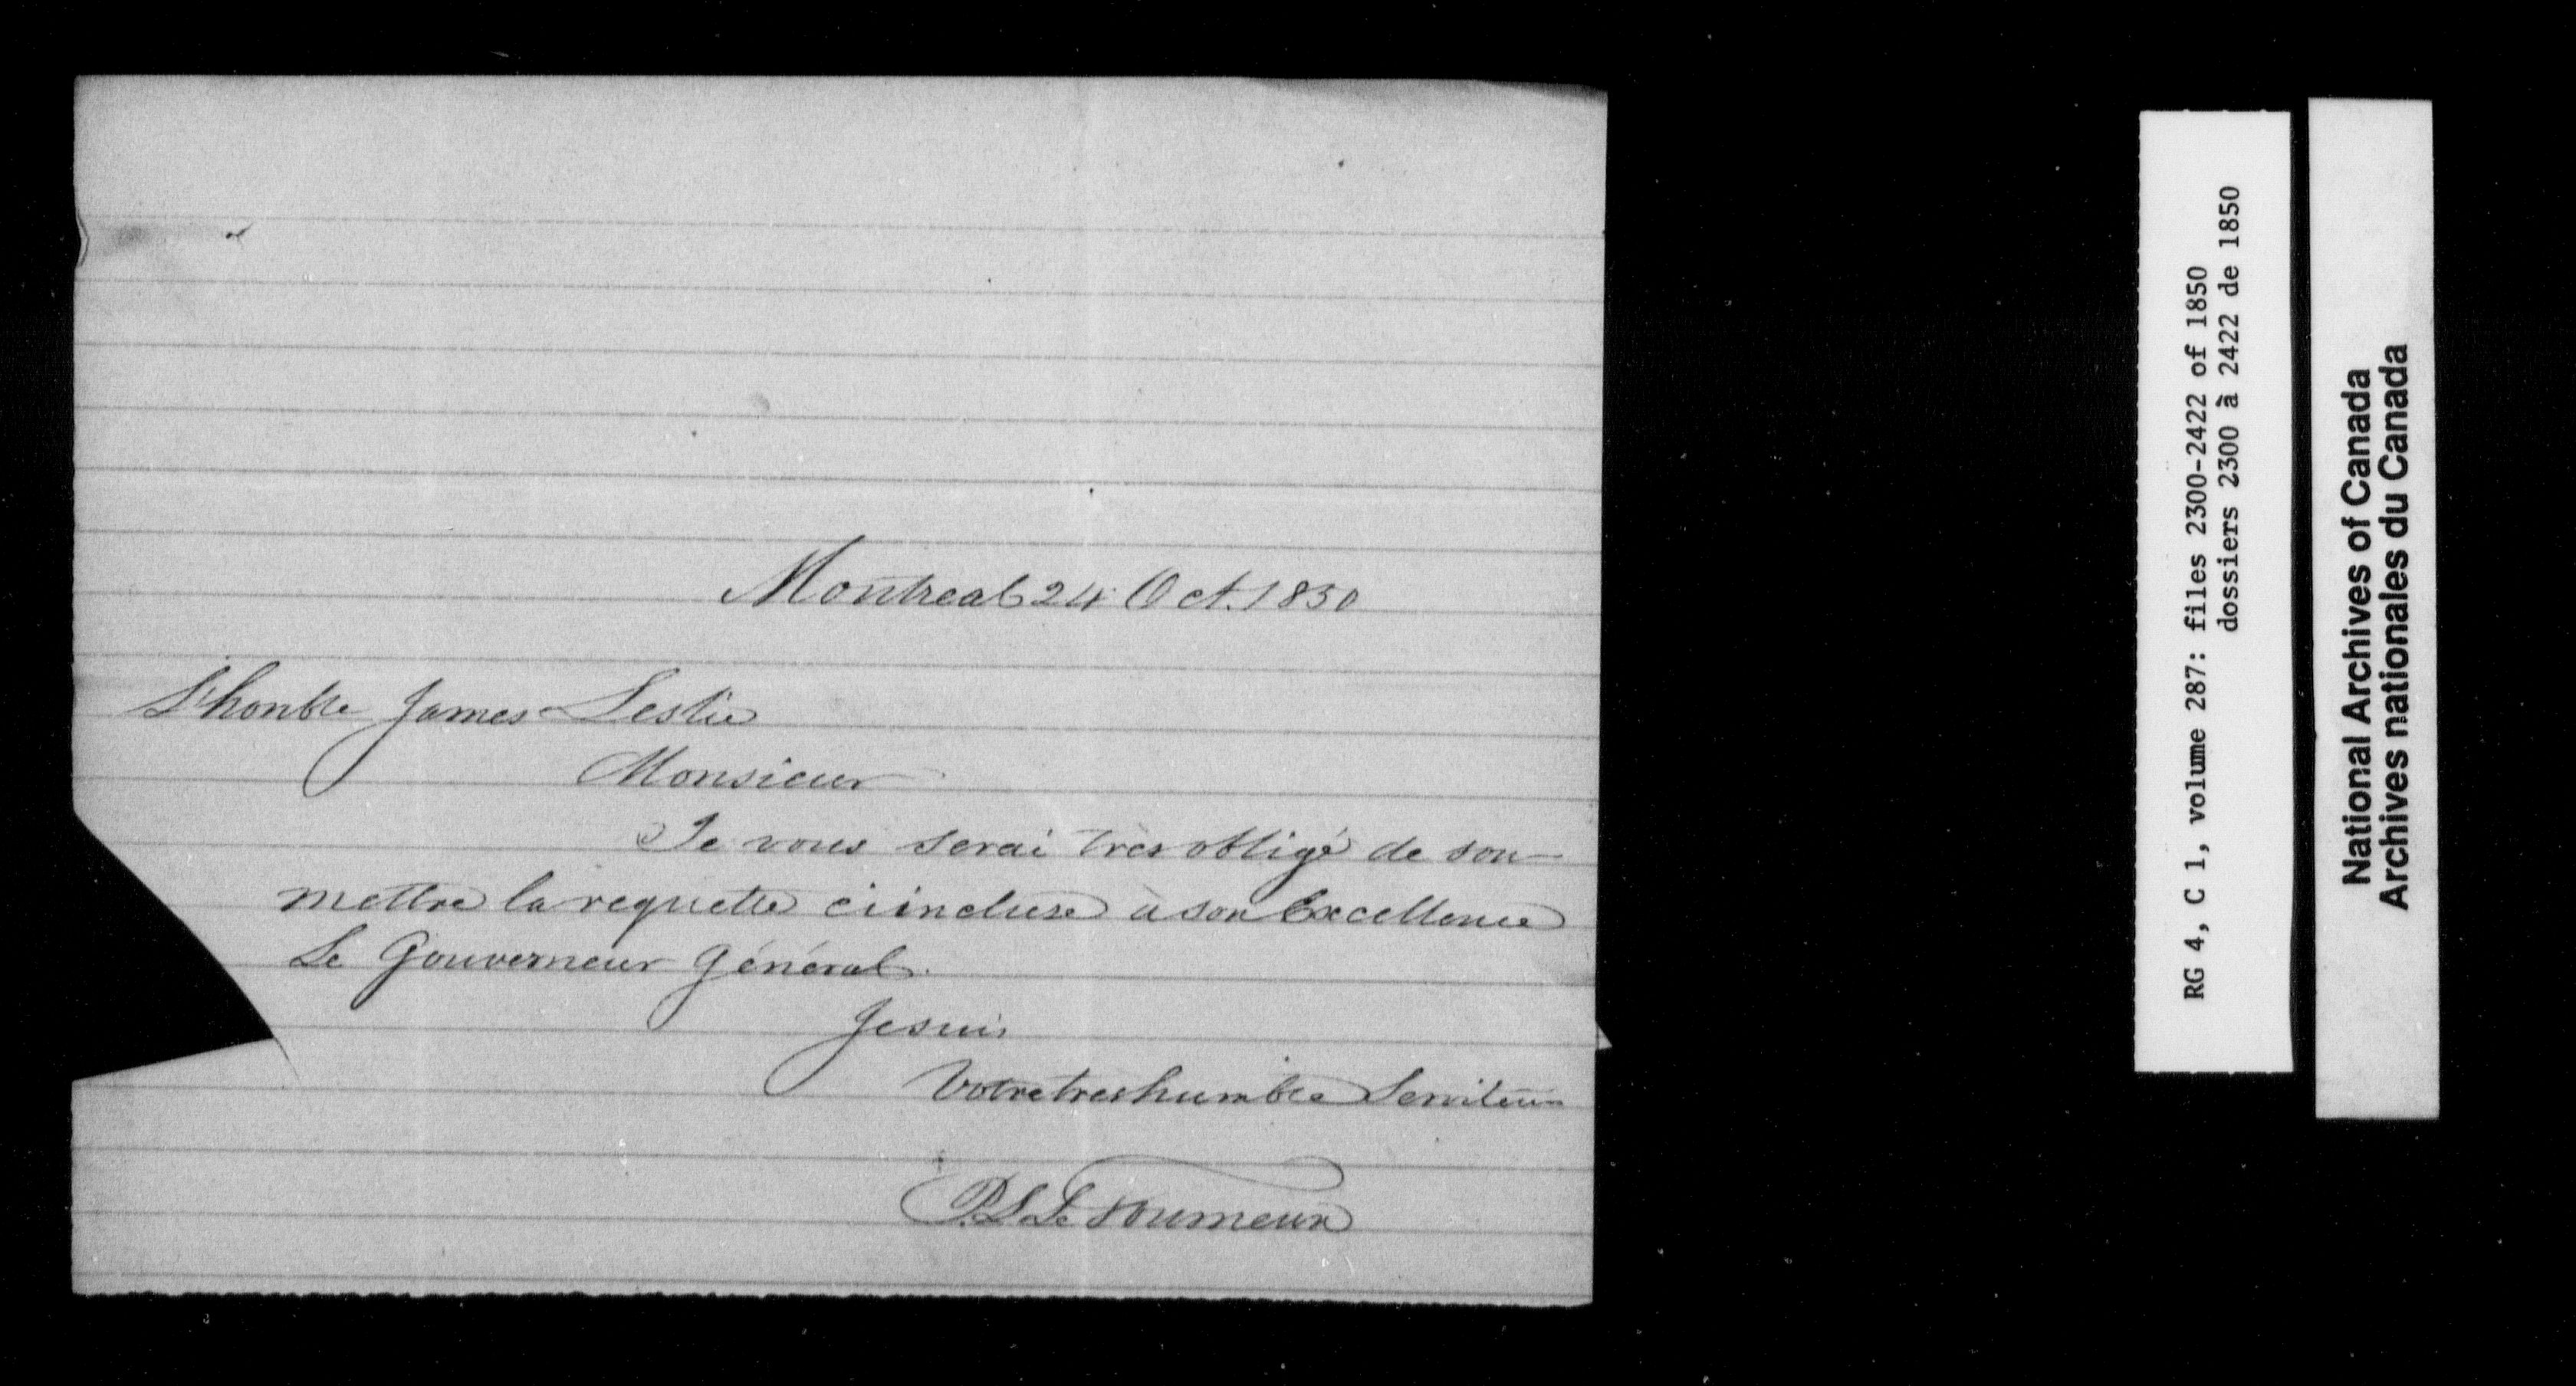 Montreal 24 Oct. 1850
L'honble James Leslie
Monsieur
Je vous serai très obligé de sou-
mettre la requette ci incluse à son Excellence
Le Gouverneur Général.
Je suis
Votre tres humble Serviteur
P. L. Le Tourneux
RG 4, C 1, volume 287: files 2300-2422 of 1850
dossiers 2300 à 2422 de 1850
National Archives of Canada
Archives nationales du Canada